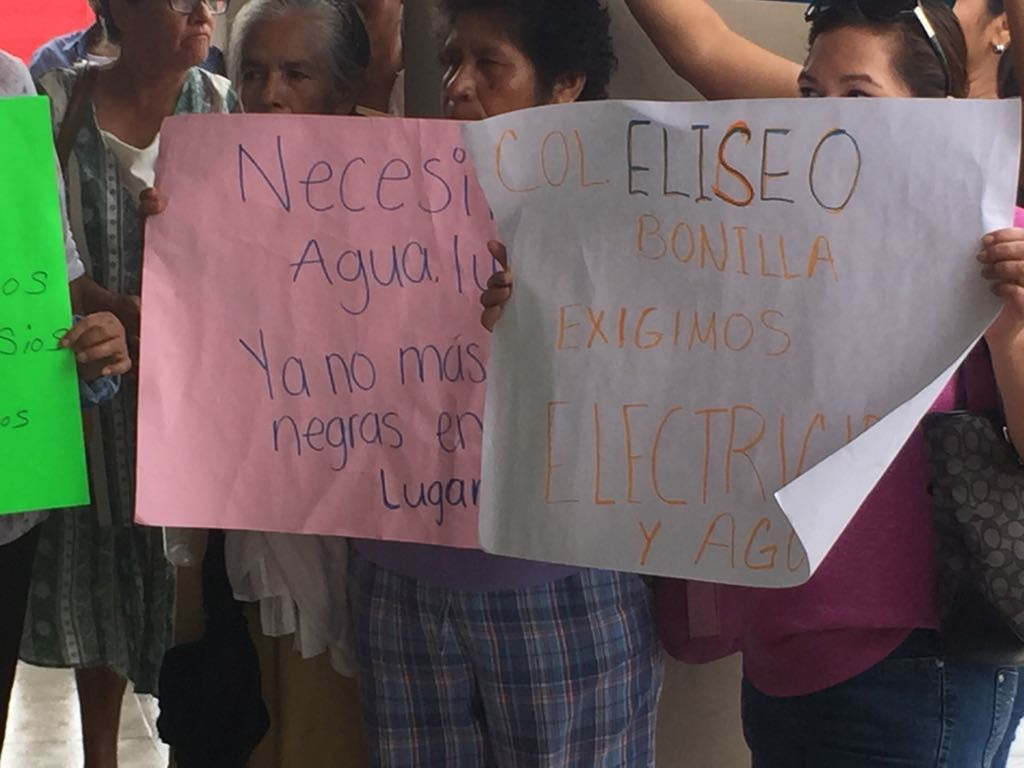 os
sios
os
Necesi
Agua. lu
Ya no más
negras en
Lugar
COL ELISEO
BONILLA
EXIGIMOS
ELECTRICI
Y AGU